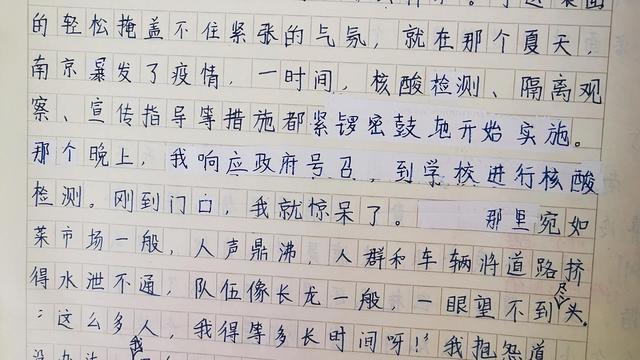 的轻松掩盖不住紧张的气氛，就在那个夏天，
南京暴发了疫情，一时间，核酸检测、隔离观
察、宣传指导等措施都紧锣密鼓地开始实施。
那个晚上，我响应政府号召，到学校进行核酸
检测。刚到门口，我就惊呆了。那里宛如
菜市场一般，人声鼎沸，人群和车辆将道路挤
得水泄不通，队伍像长龙一般，一眼望不到尽头。
"这么多人，我得等多长时间呀！"我抱怨道
我